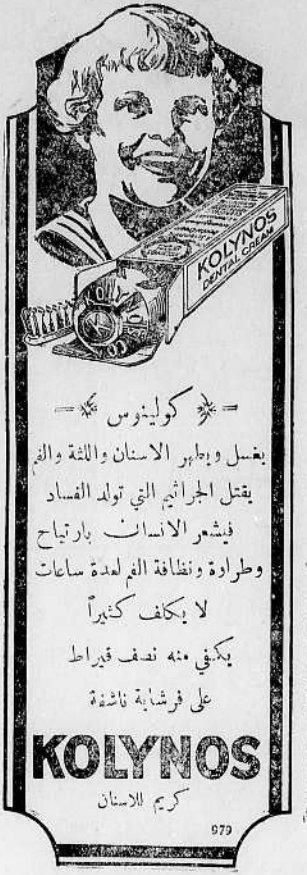 KOLYNOS
DENTAL CREAM
كولينوس
يغسل ويطهر الاسنان واللثة والفم
يقتل الجراثيم التي تولد الفساد
فيشعر الانسان بارتياح
وطراوة ونظافة الفم لعدة ساعات
لا يكلف كثيراً
يكفي منه نصف قيراط
على فرشاية ناشفة
KOLYNOS
كريم للاسنان
979